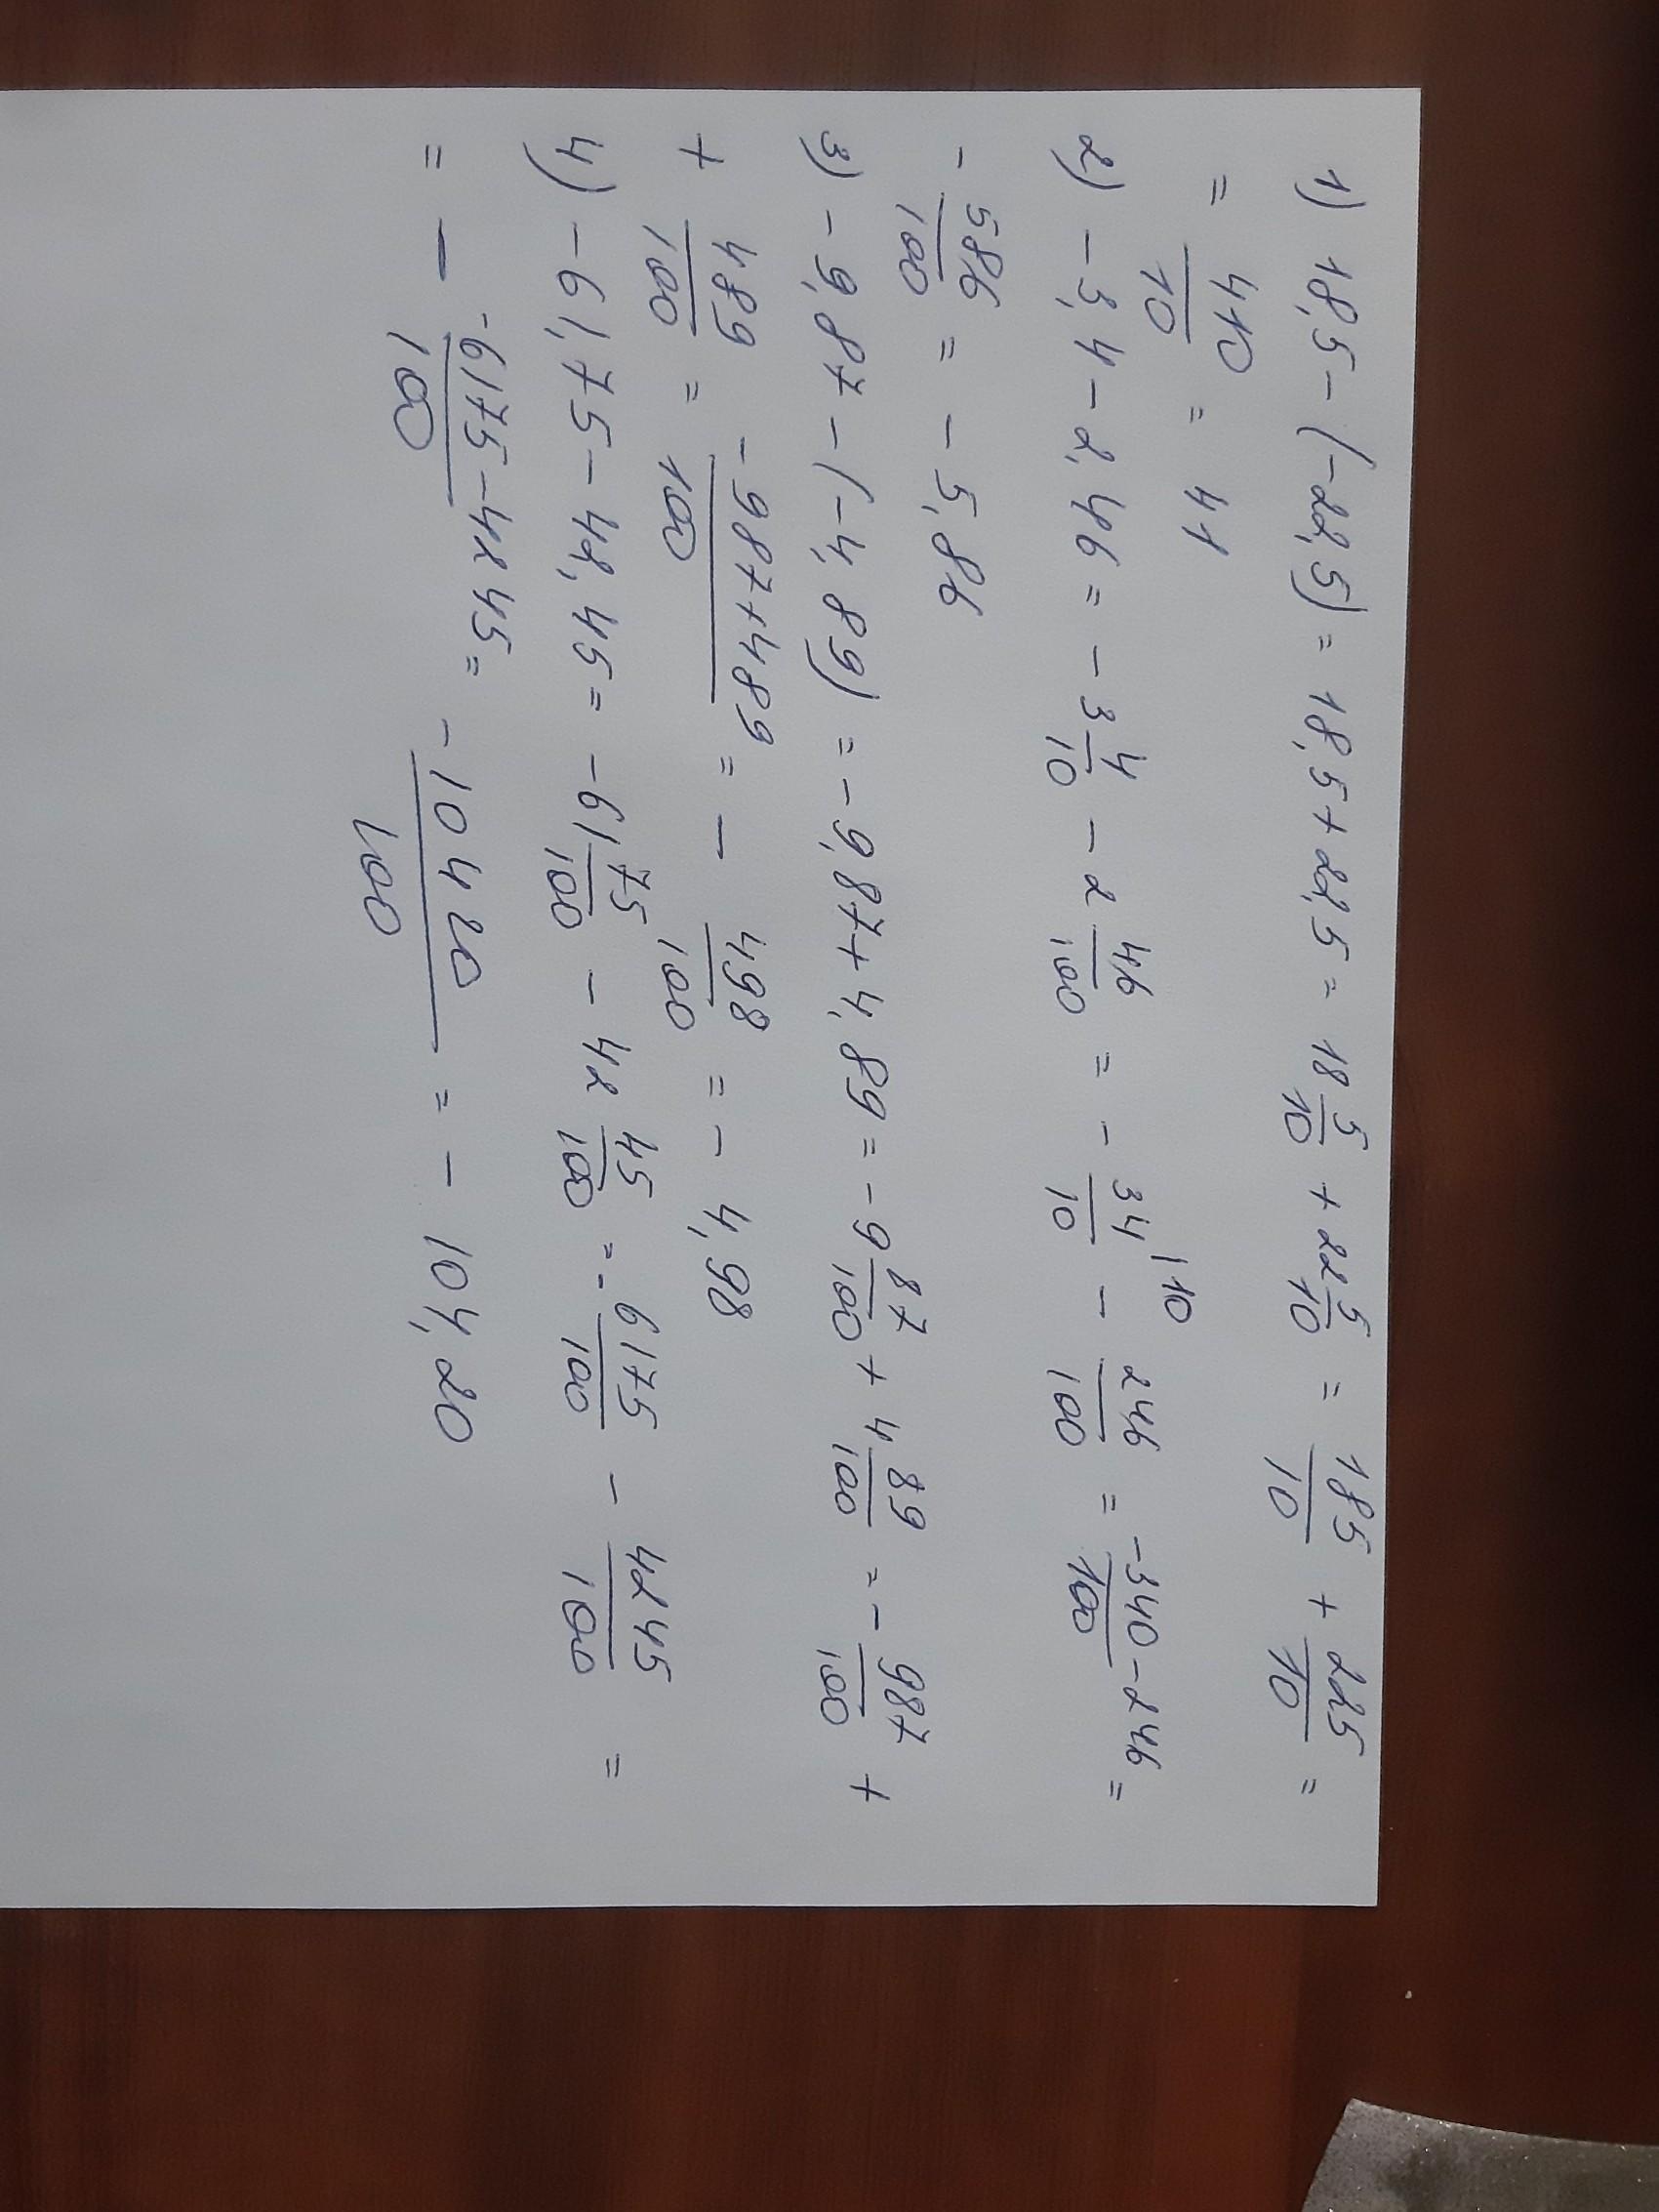 1) 18,5-(-22,5) = 18,5+22,5 = 18 5/10 + 22 5/10 = 185/10 + 225/10 =
= 410/10 = 41
2) -3,4-2,46 = -3 4/10 - 2 46/100 = - 34/10 |10 - 246/100 = -340-246/100 =
- 586/100 = -5,86
3) -9,87-(-4,89) = -9,87+4,89 = -9 87/100 + 4 89/100 = - 987/100 +
+ 489/100 = -987+489/100 = - 498/100 = - 4,98
4) -61,75-42,45 = -61 75/100 - 42 45/100 = - 6175/100 - 4245/100 =
= - -6175-4245/100 = -10420/100 = - 104,20